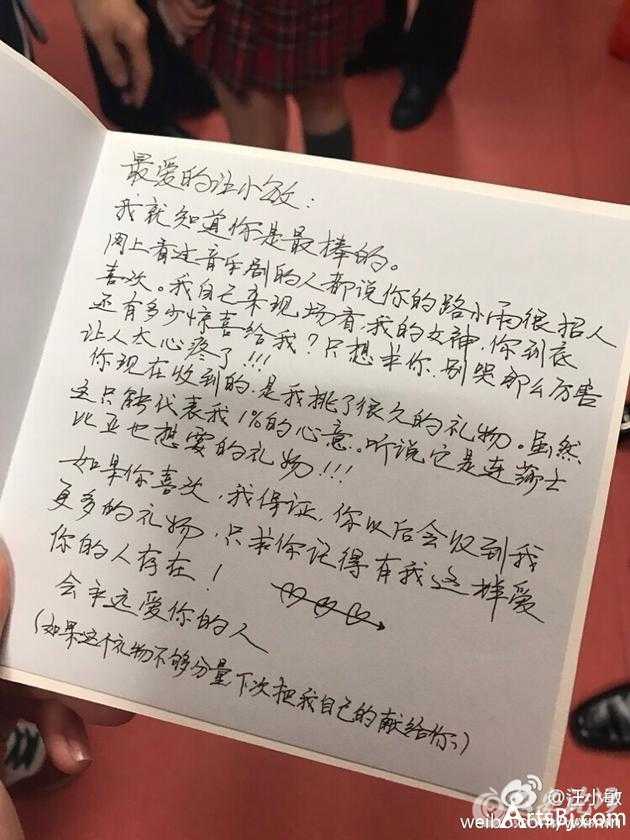 最爱的汪小敏：
我就知道你是最棒的。
网上看过音乐剧的人都说你的路小雨很招人
喜欢。我自己来现场看，我的女神，你到底
还有多少惊喜给我？只想求你，别哭那么厉害
让人太心疼了！！！
你现在收到的，是我挑了很久的礼物。虽然
这只能代表我1%的心意。听说它是连莎士
比亚也想要的礼物！！！
如果你喜欢，我保证，你以后会收到我
更多的礼物，只求你记得有我这样爱
你的人存在！
会永远爱你的人
（如果这个礼物不够分量下次把我自己的献给你）
@汪小敏
ArtsBj.com